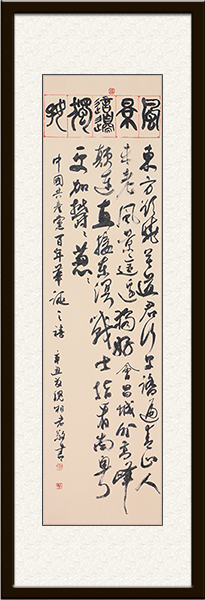 風景這邊獨好
東方欲曉莫道君行早踏遍青山人
未老風景這邊獨好會昌城外高峰
顛連直接東溟戰士指看南粵
更加鬱鬱蔥蔥
中國共產黨百年華誕之禧
辛丑
書